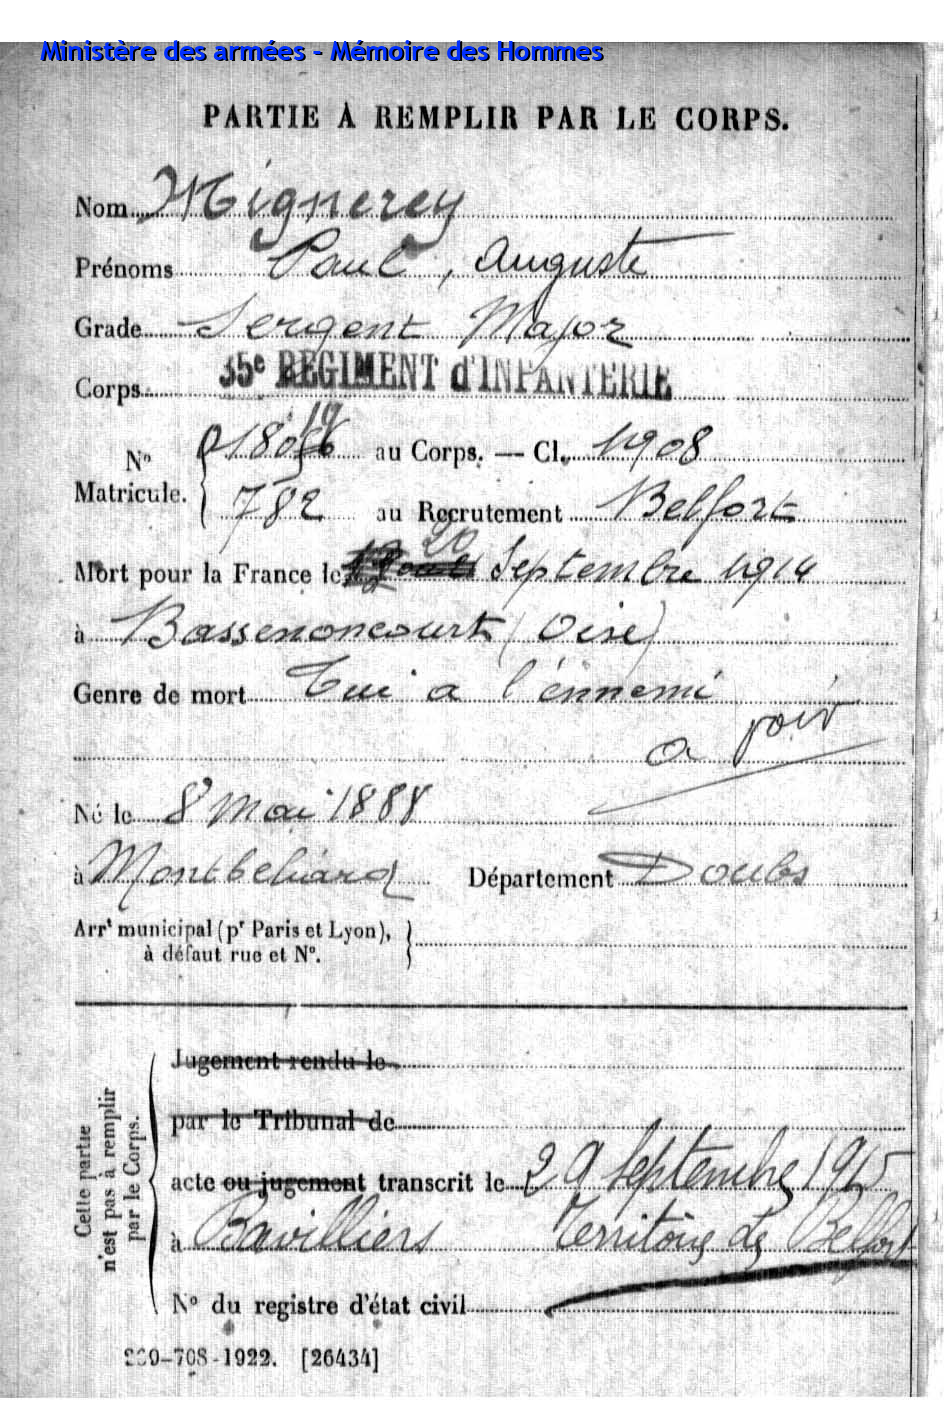 Ministère des armées - Mémoire des Hommes
PARTIE À REMPLIR PAR LE CORPS.
Nom Mignerey
Prénoms Paul, Auguste
Grade Sergent Major
Corps 35e REGIMENT d'INFANTERIE
19
N° Matricule. { 01806 au Corps. — Cl. 1908
782 au Recrutement Belfort
20
Mort pour la France le Septembre 1914
à Bassenoncourt (Oise)
Genre de mort Tué a l'énnemi
a voir
Né le 8 Mai 1888
à Montbeliard Département Doubs
Arrt municipal (pr Paris et Lyon),
à défaut rue et N°.
Cette partie n'est pas à remplir par le Corps.
Jugement rendu le
par le Tribunal de
acte ou jugement transcrit le 29 Septembre 1915
à Bavilliers Territoire de Belfort
N° du registre d'état civil
-708-1922. [26434]